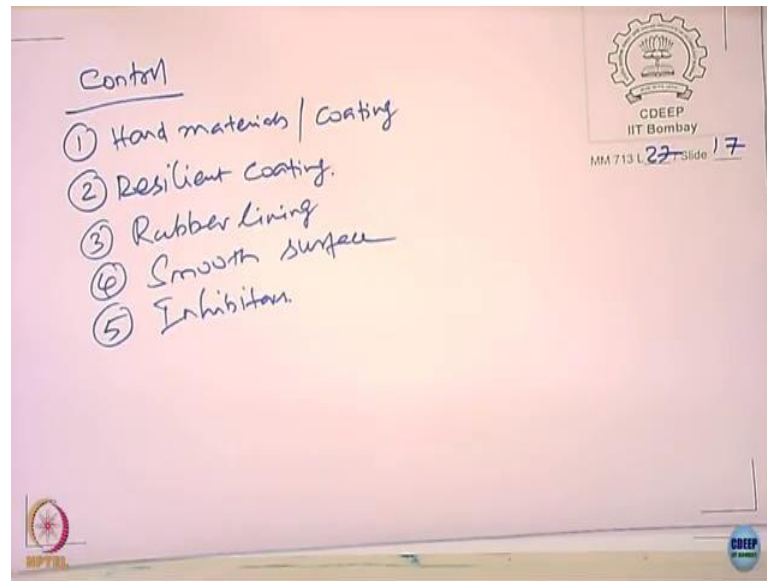 Control
① Hard materials / Coating
② Resilient Coating.
③ Rubber lining
④ Smooth surface
⑤ Inhibitors.
CDEEP
IIT Bombay
MM 713 L 27 Slide 17
NPTEL
CDEEP